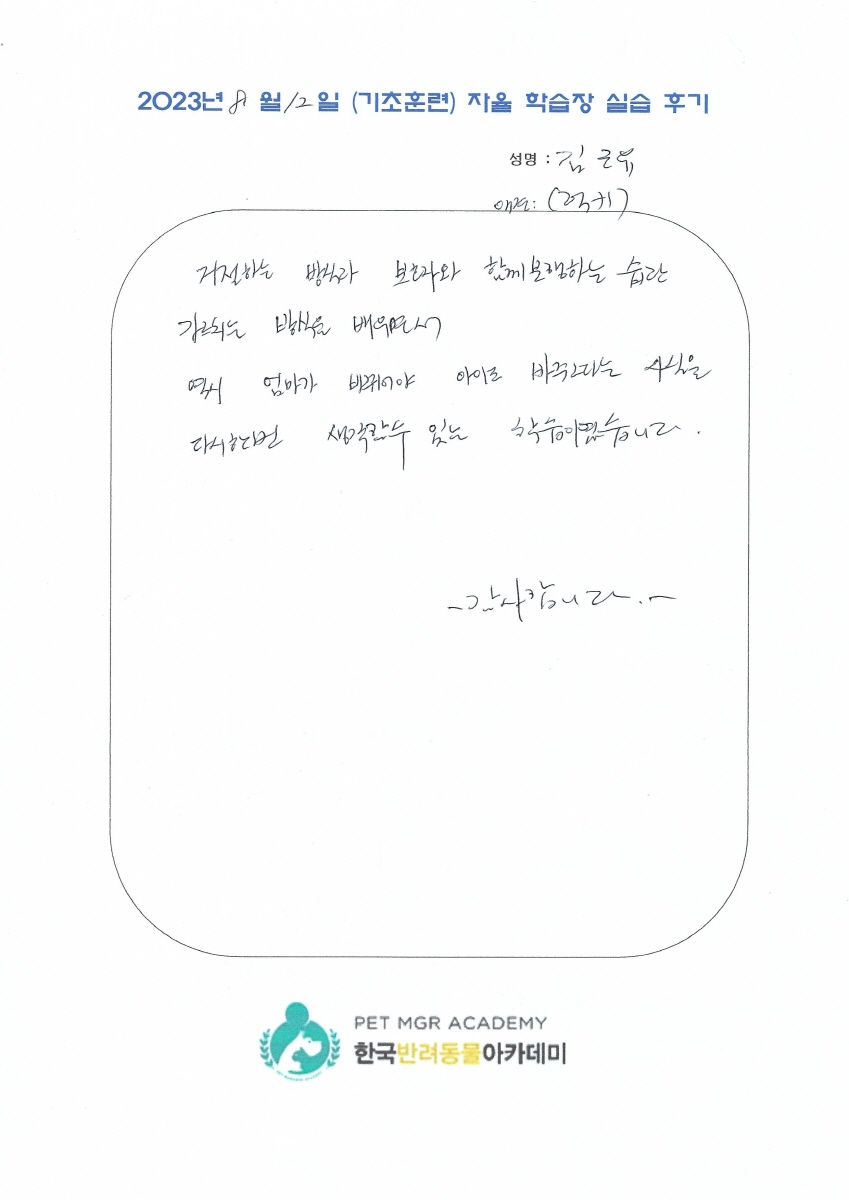 2023년 8월 12일 (기초훈련) 자율 학습장 실습 후기
성명 : 김근유
애견: (럭키)
거절하는 방식과 보호자와 함께보행하는 습관
방식을 배우면서
역시 엄마가 바뀌어야 아이도 바뀐다는 사실을
다시한번 생각할수 있는 학습이였습니다.
~감사합니다.~
PET MGR ACADEMY
한국반려동물아카데미